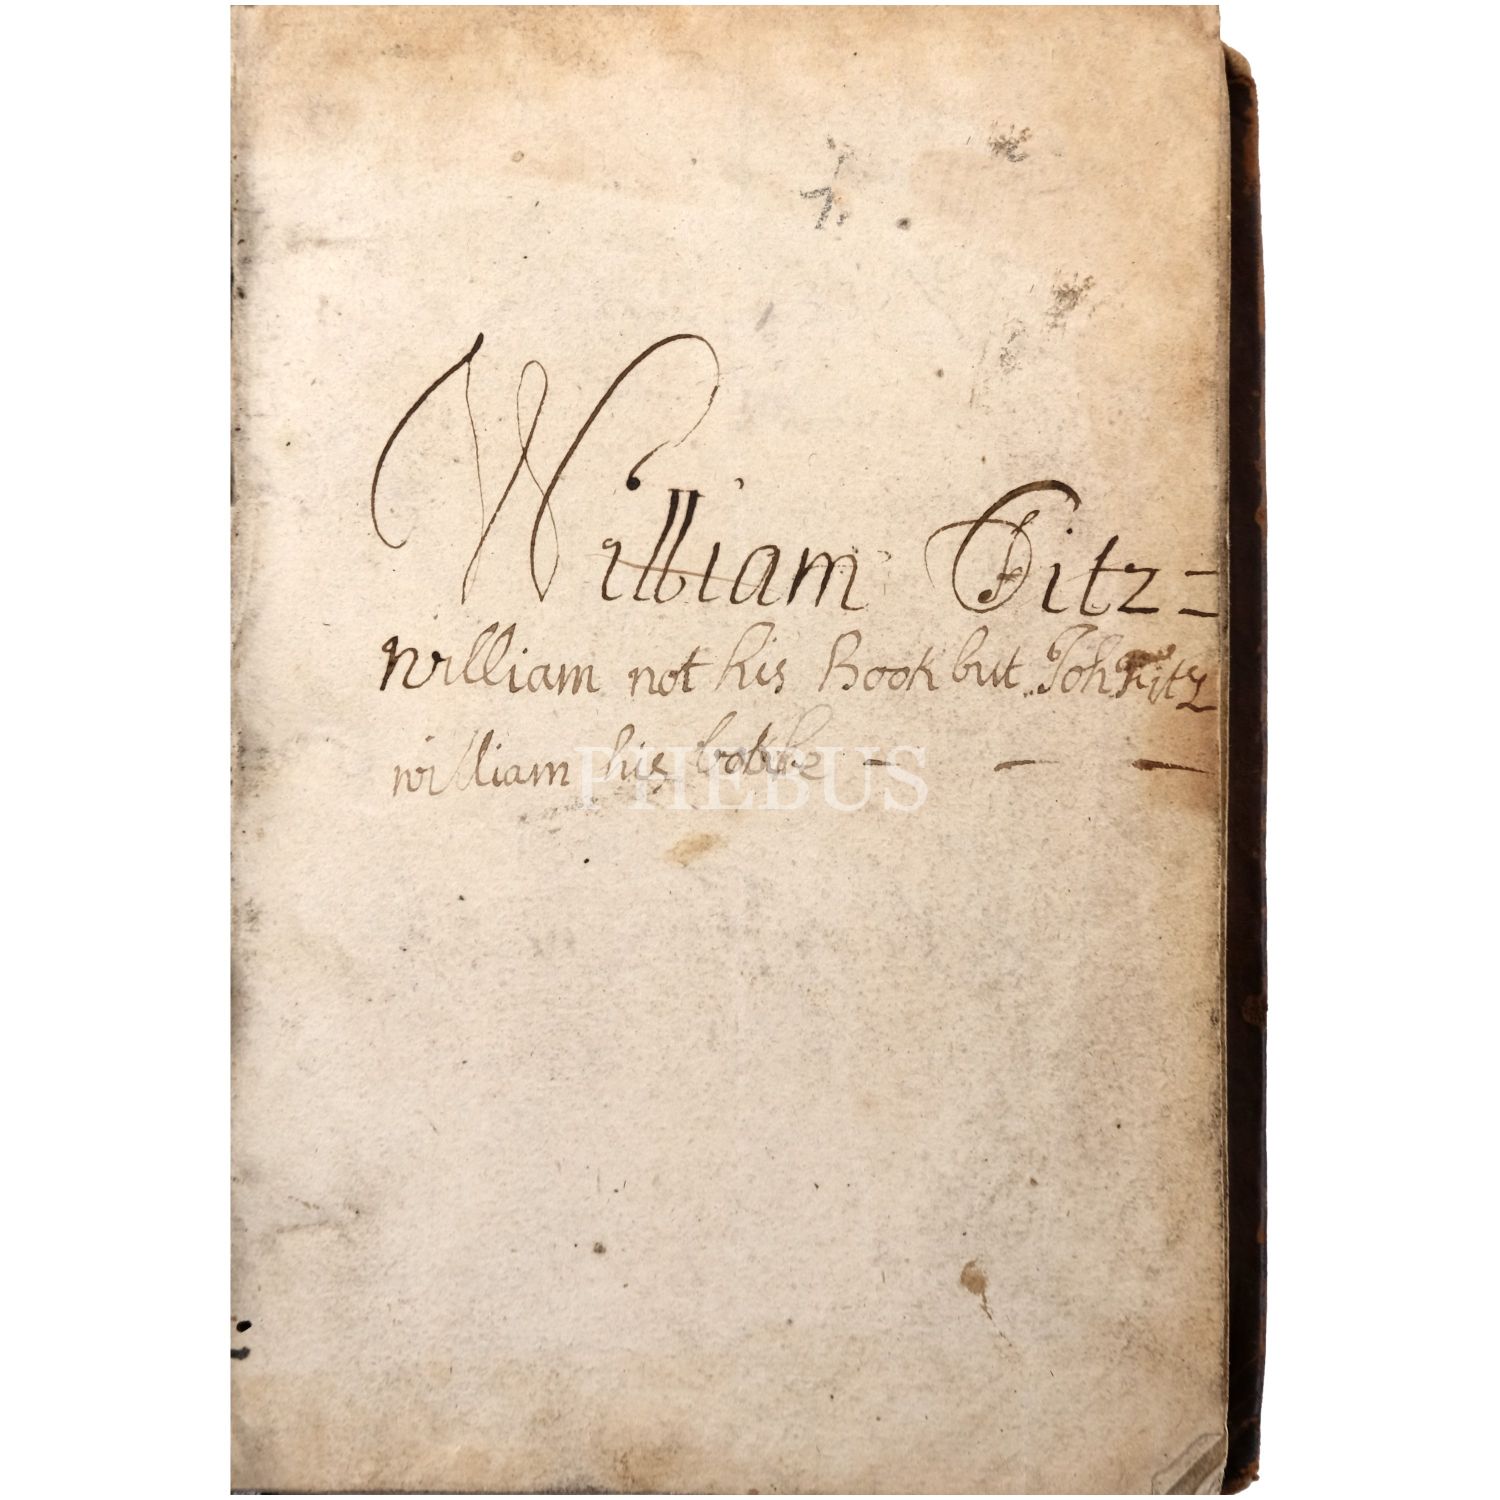 William Fitz=
william not his Book but Joh Fitz
william his bokke - - -
PHEBUS